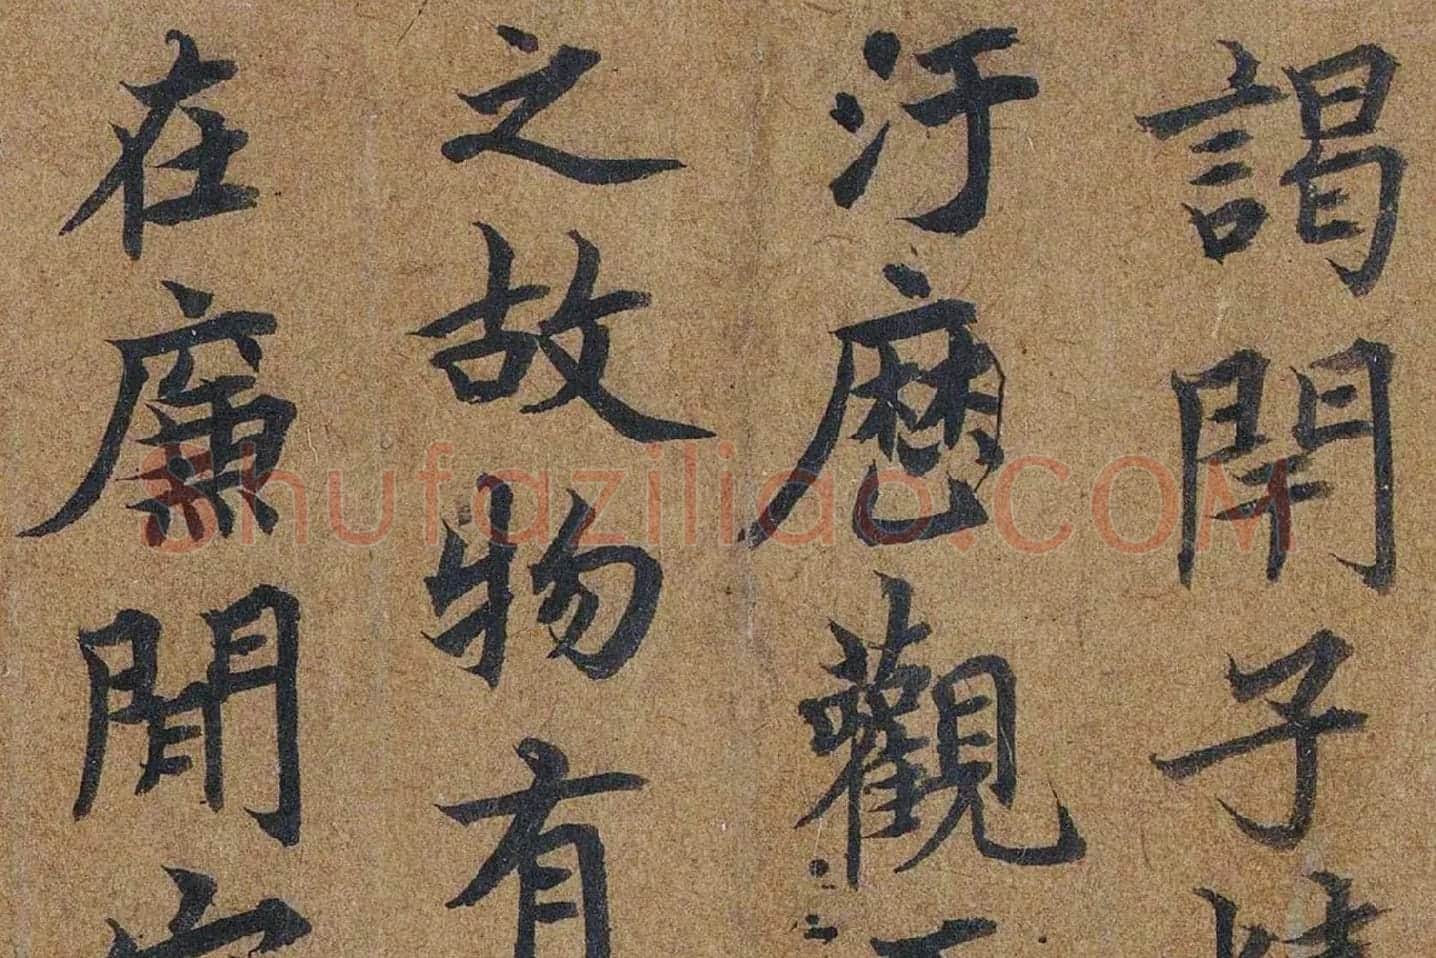 謁閈子情
汙歷觀
之故物有
在廉閒
Shufaziliao.COM